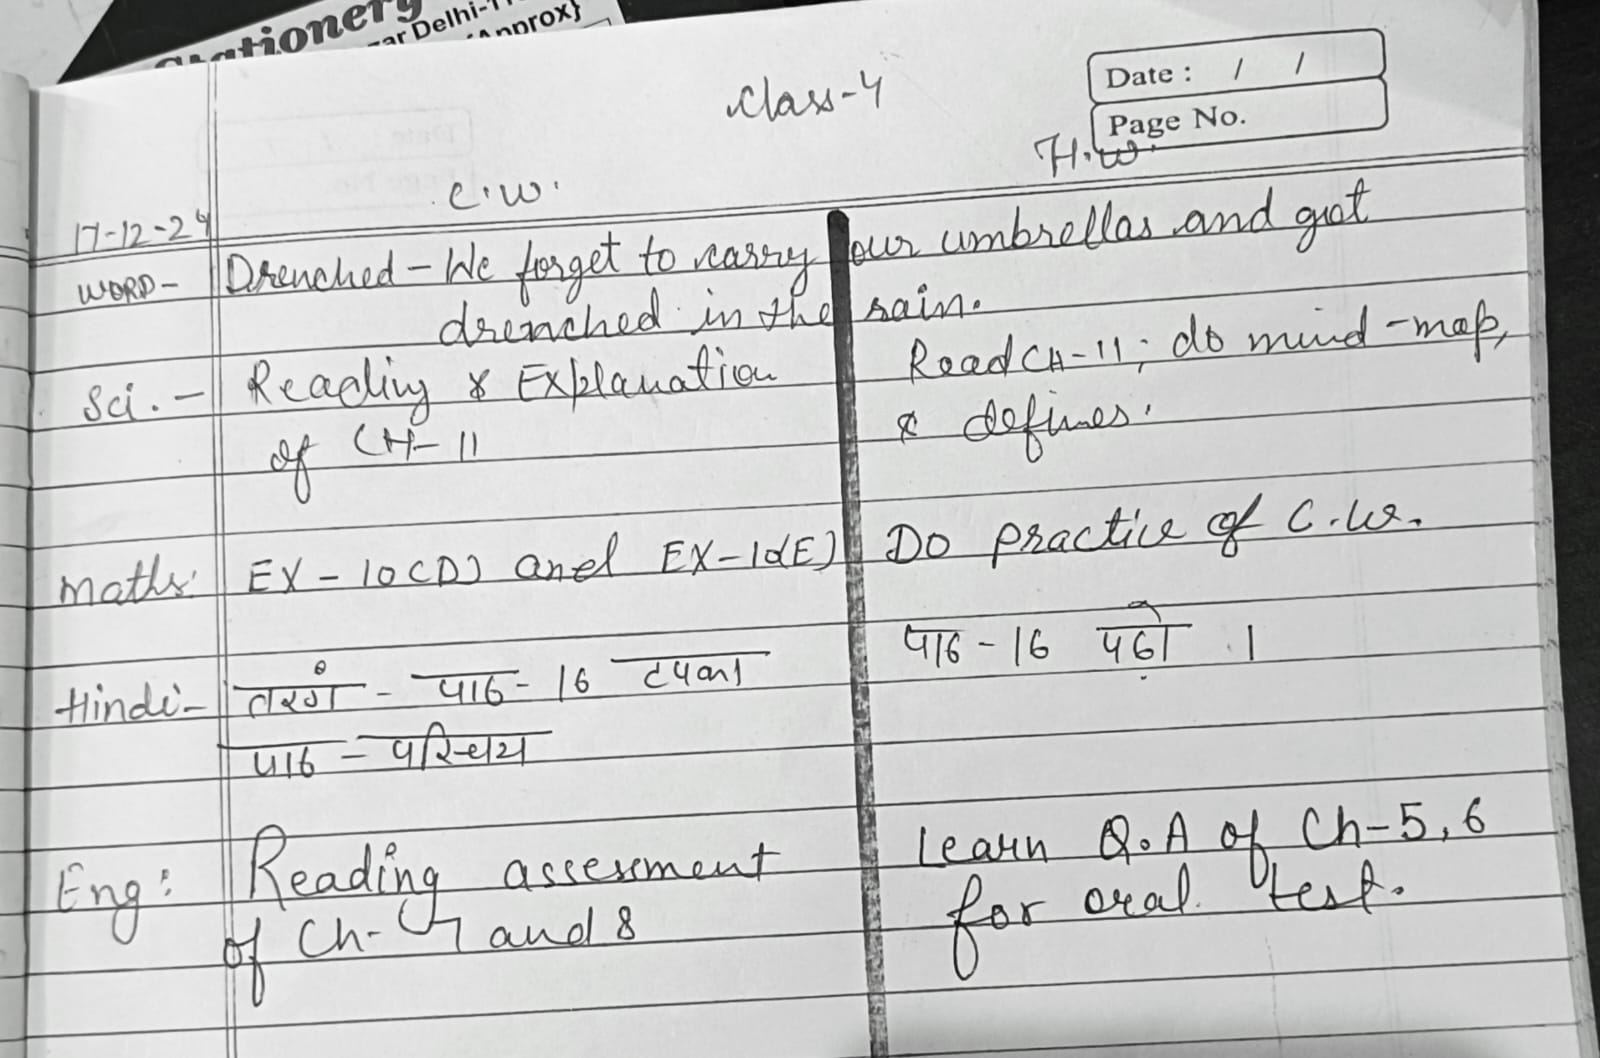 Stationery
ar Delhi-11
(Approx}
Class-4
Date : / /
Page No.
C.W. H.W.
17-12-24
WORD- Drenched - We forget to carry our umbrellas and got
drenched in the rain.
Sci. - Reading & Explanation Read CH-11; do mind-map,
of CH-11 & defines.
Maths: EX-10(D) and EX-10(E) Do practice of C.W.
Hindi- तरंग - पाठ- 16 पाठ-16 पढ़ो ।
पाठ - परिचय
Eng: Reading assesment Learn Q.A of Ch-5,6
of Ch-7 and 8 for oral test.